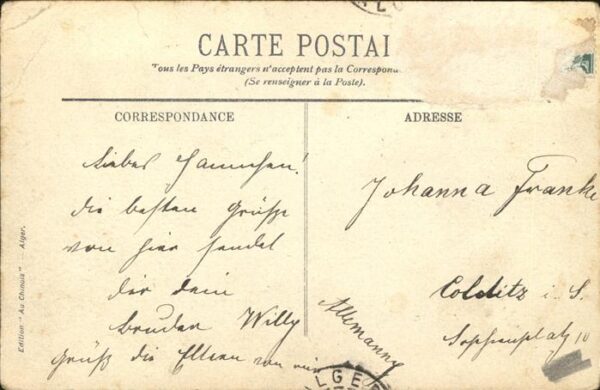 CARTE POSTAL
Tous les Pays étrangers n'acceptent pas la Correspond
(Se renseigner à la Poste).
CORRESPONDANCE
ADRESSE
Liebes Hannchen!
die besten Grüße
von hier sendet
dir dein
Bruder Willy
Grüß die Eltern von mir
Johanna Franke
Colditz i. S.
Sophienplatz 10
Allemanny
Edition "Au Chinois" - Alger.
ALGER